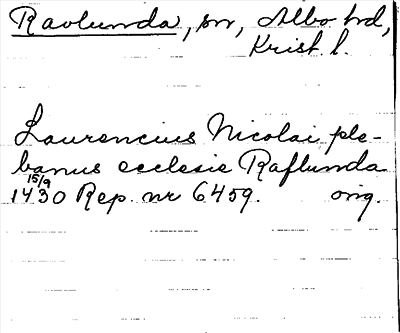 Ravlunda, sn, Albo hd,
Krist. l.
Laurencius Nicolai ple-
banus ecclesie Raflunda
15/9
1430 Rep. nr 6459. orig.